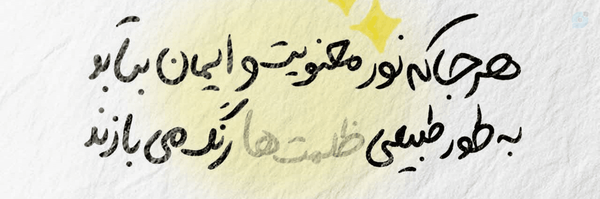 هر جا که نور معنویت و ایمان بتابد
به طور طبیعی ظلمت ها رنگ می بازند